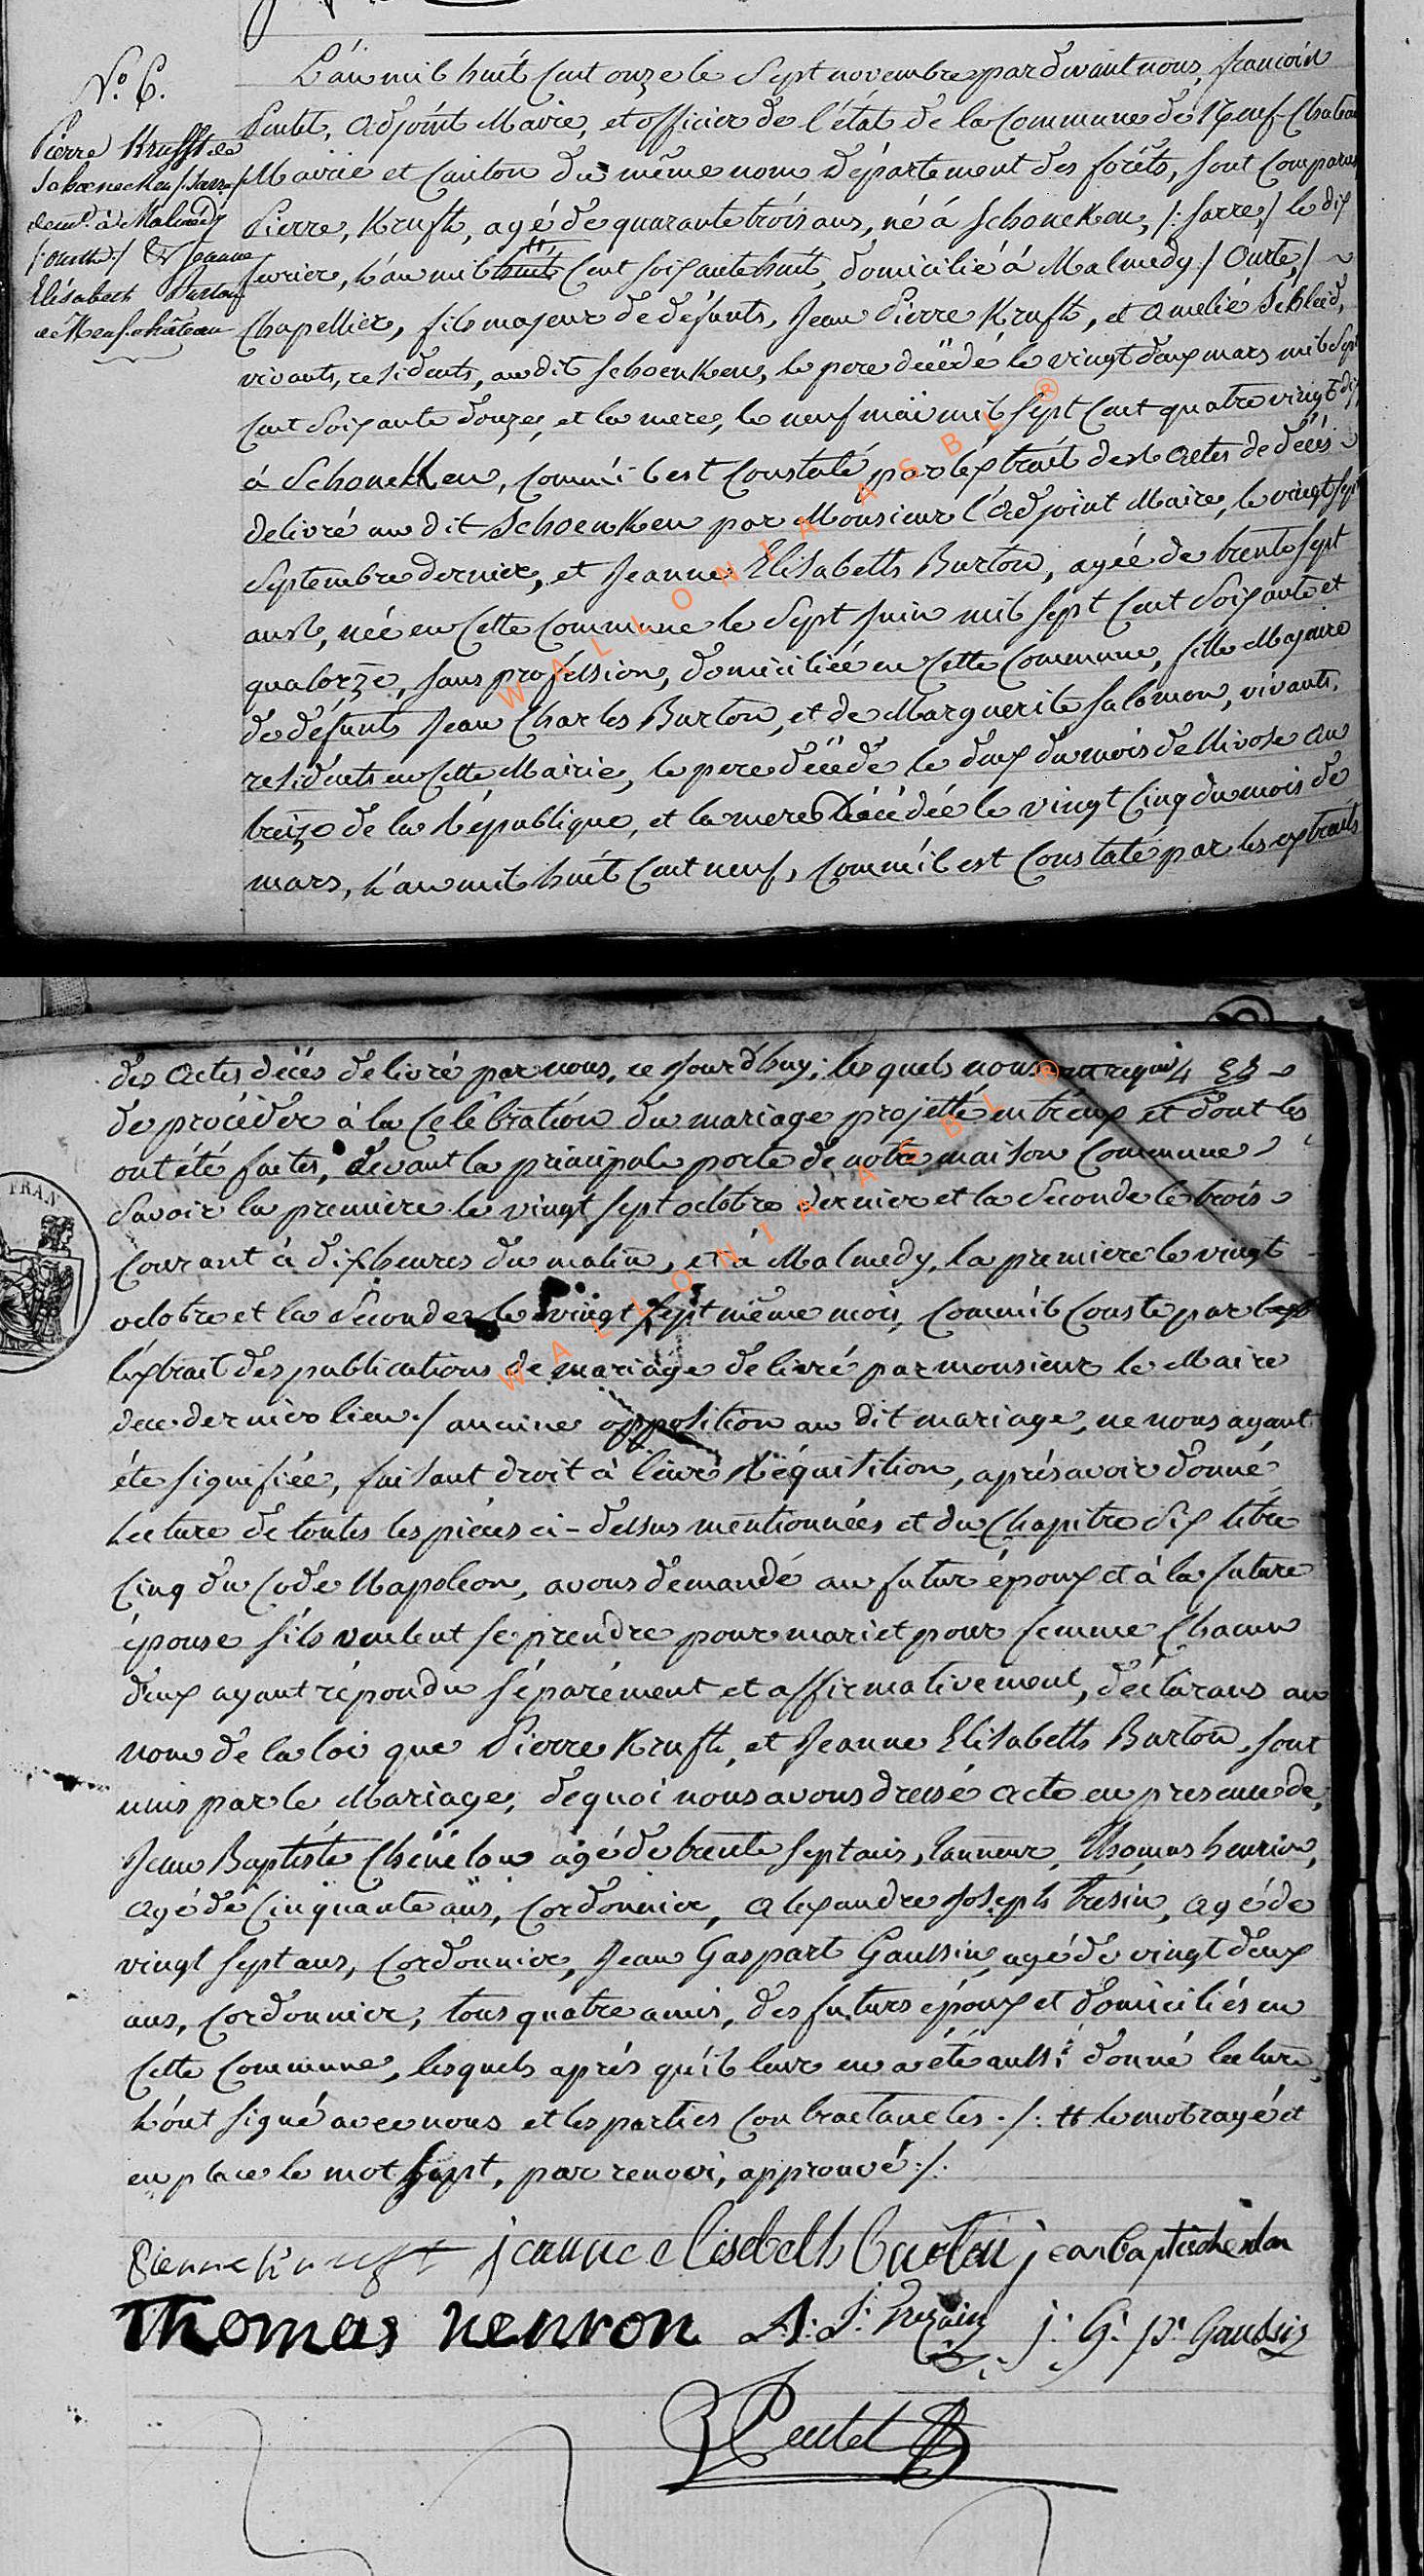 N.º 6.
Pierre Krufft de
Schoenecken /: Sarre :/
dem.t à Malmedy
/: ourthe :/ & Jeanne
Elisabeth Burton
de Neufchâteau
L'an mil huit Cent onze le Sept novembre, pardevant nous, francois
Pentet, adjoint Maire, et officier de l'état de la Commune de Neuf-Chateau
Mairie et Canton du même nom département des forêts, sont comparus
Pierre, Kruft, agé de quarante trois ans, né à Schoneken, /: Sarre,/ le dix
fevrier, l'an mil huit Cent soixante huit, domicilié à Malmedy / Ourte,/
Chapellier, fils majeur de défunts, Jean Pierre Kruft, et Amelié Schleid,
vivants, residents, au dit Schoenken, le pere décédé le vingt deux mars mil Sept
Cent Soixante douze, et la mere, le neuf mai mil sept Cent quatre vingt dix
à Schonekken, comm'il est Constaté par l'extrait des actes de décès
delivré au dit Schoenken par Monsieur l'adjoint Maire, le vingt sept
Septembre dernier, et Jeanne Elisabeth Burton, agée de trente sept
ans, née en Cette Commune le Sept Juin mil sept Cent Soixante et
quatorze, sans profession, domiciliée en Cette Commune, fille Majeure
de défunts Jean Charles Burton, et de Marguerite Salomon, vivants,
residents en Cette Mairie, le pere décédé le deux du mois de Nivose an
treize de la République, et la mere décédée le vingt Cinq du mois de
mars, l'an mil huit Cent neuf, comm'il est Constaté par les extraits
des actes décès delivré par nous, ce jourd'huy; les quels nous ont requis
de procéder à la Célébration du mariage projetté entr'eux et dont les
ont été faites, devant la principale porte de notre maison Commune
Savoir la premiere le vingt sept octobre dernier et la Seconde le trois
Courant à dix heures du matin, et à Malmedy, la premiere le vingt
octobre et la Seconde le vingt sept même mois, comm'il Conste par
l'extrait des publications de mariage delivré par monsieur le Maire
de ce dernier lieu / aucune opposition au dit mariage, ne nous ayant
été signifiée, faisant droit à leur Réquisition, après avoir donné
lecture de toutes les pièces ci-dessus mentionnées et du Chapitre Six titre
Cinq du Code Napoleon, avons demandé au futur époux et à la future
épouse s'ils veulent se prendre pour mari et pour femme Chacun
d'eux ayant répondu séparément et affirmativement, déclarans au
nom de la loi que Pierre Kruft, et Jeanne Elisabeth Burton, sont
unis par le Mariage, dequoi nous avons dressé acte en presence de,
Jean Baptiste Chenelon agé de trente sept ans, Tanneur, Thomas henrion,
agé de Cinquante ans, Cordonnier, alexandre Joseph Tresin, agé de
vingt sept ans, Cordonnier, Jean Gaspart Gaussin agé de vingt deux
ans, Cordonnier, tous quatre amis, des futurs époux et domiciliés en
Cette Commune, lesquels après qu'il leur en a été aussi donné lecture,
l'ont signé avec nous et les parties Contractantes ./. # le mot rayé et
en place le mot sept, par renvoi, approuvé./.
Pierre Krufft jeanne elisebeth burton jean baptiste chenelon
Thomas henrion A: J: Tresain j: G: p: Gaussin
Pentet
FRAN
WALLONIA ASBL ®
WALLONIA ASBL ®